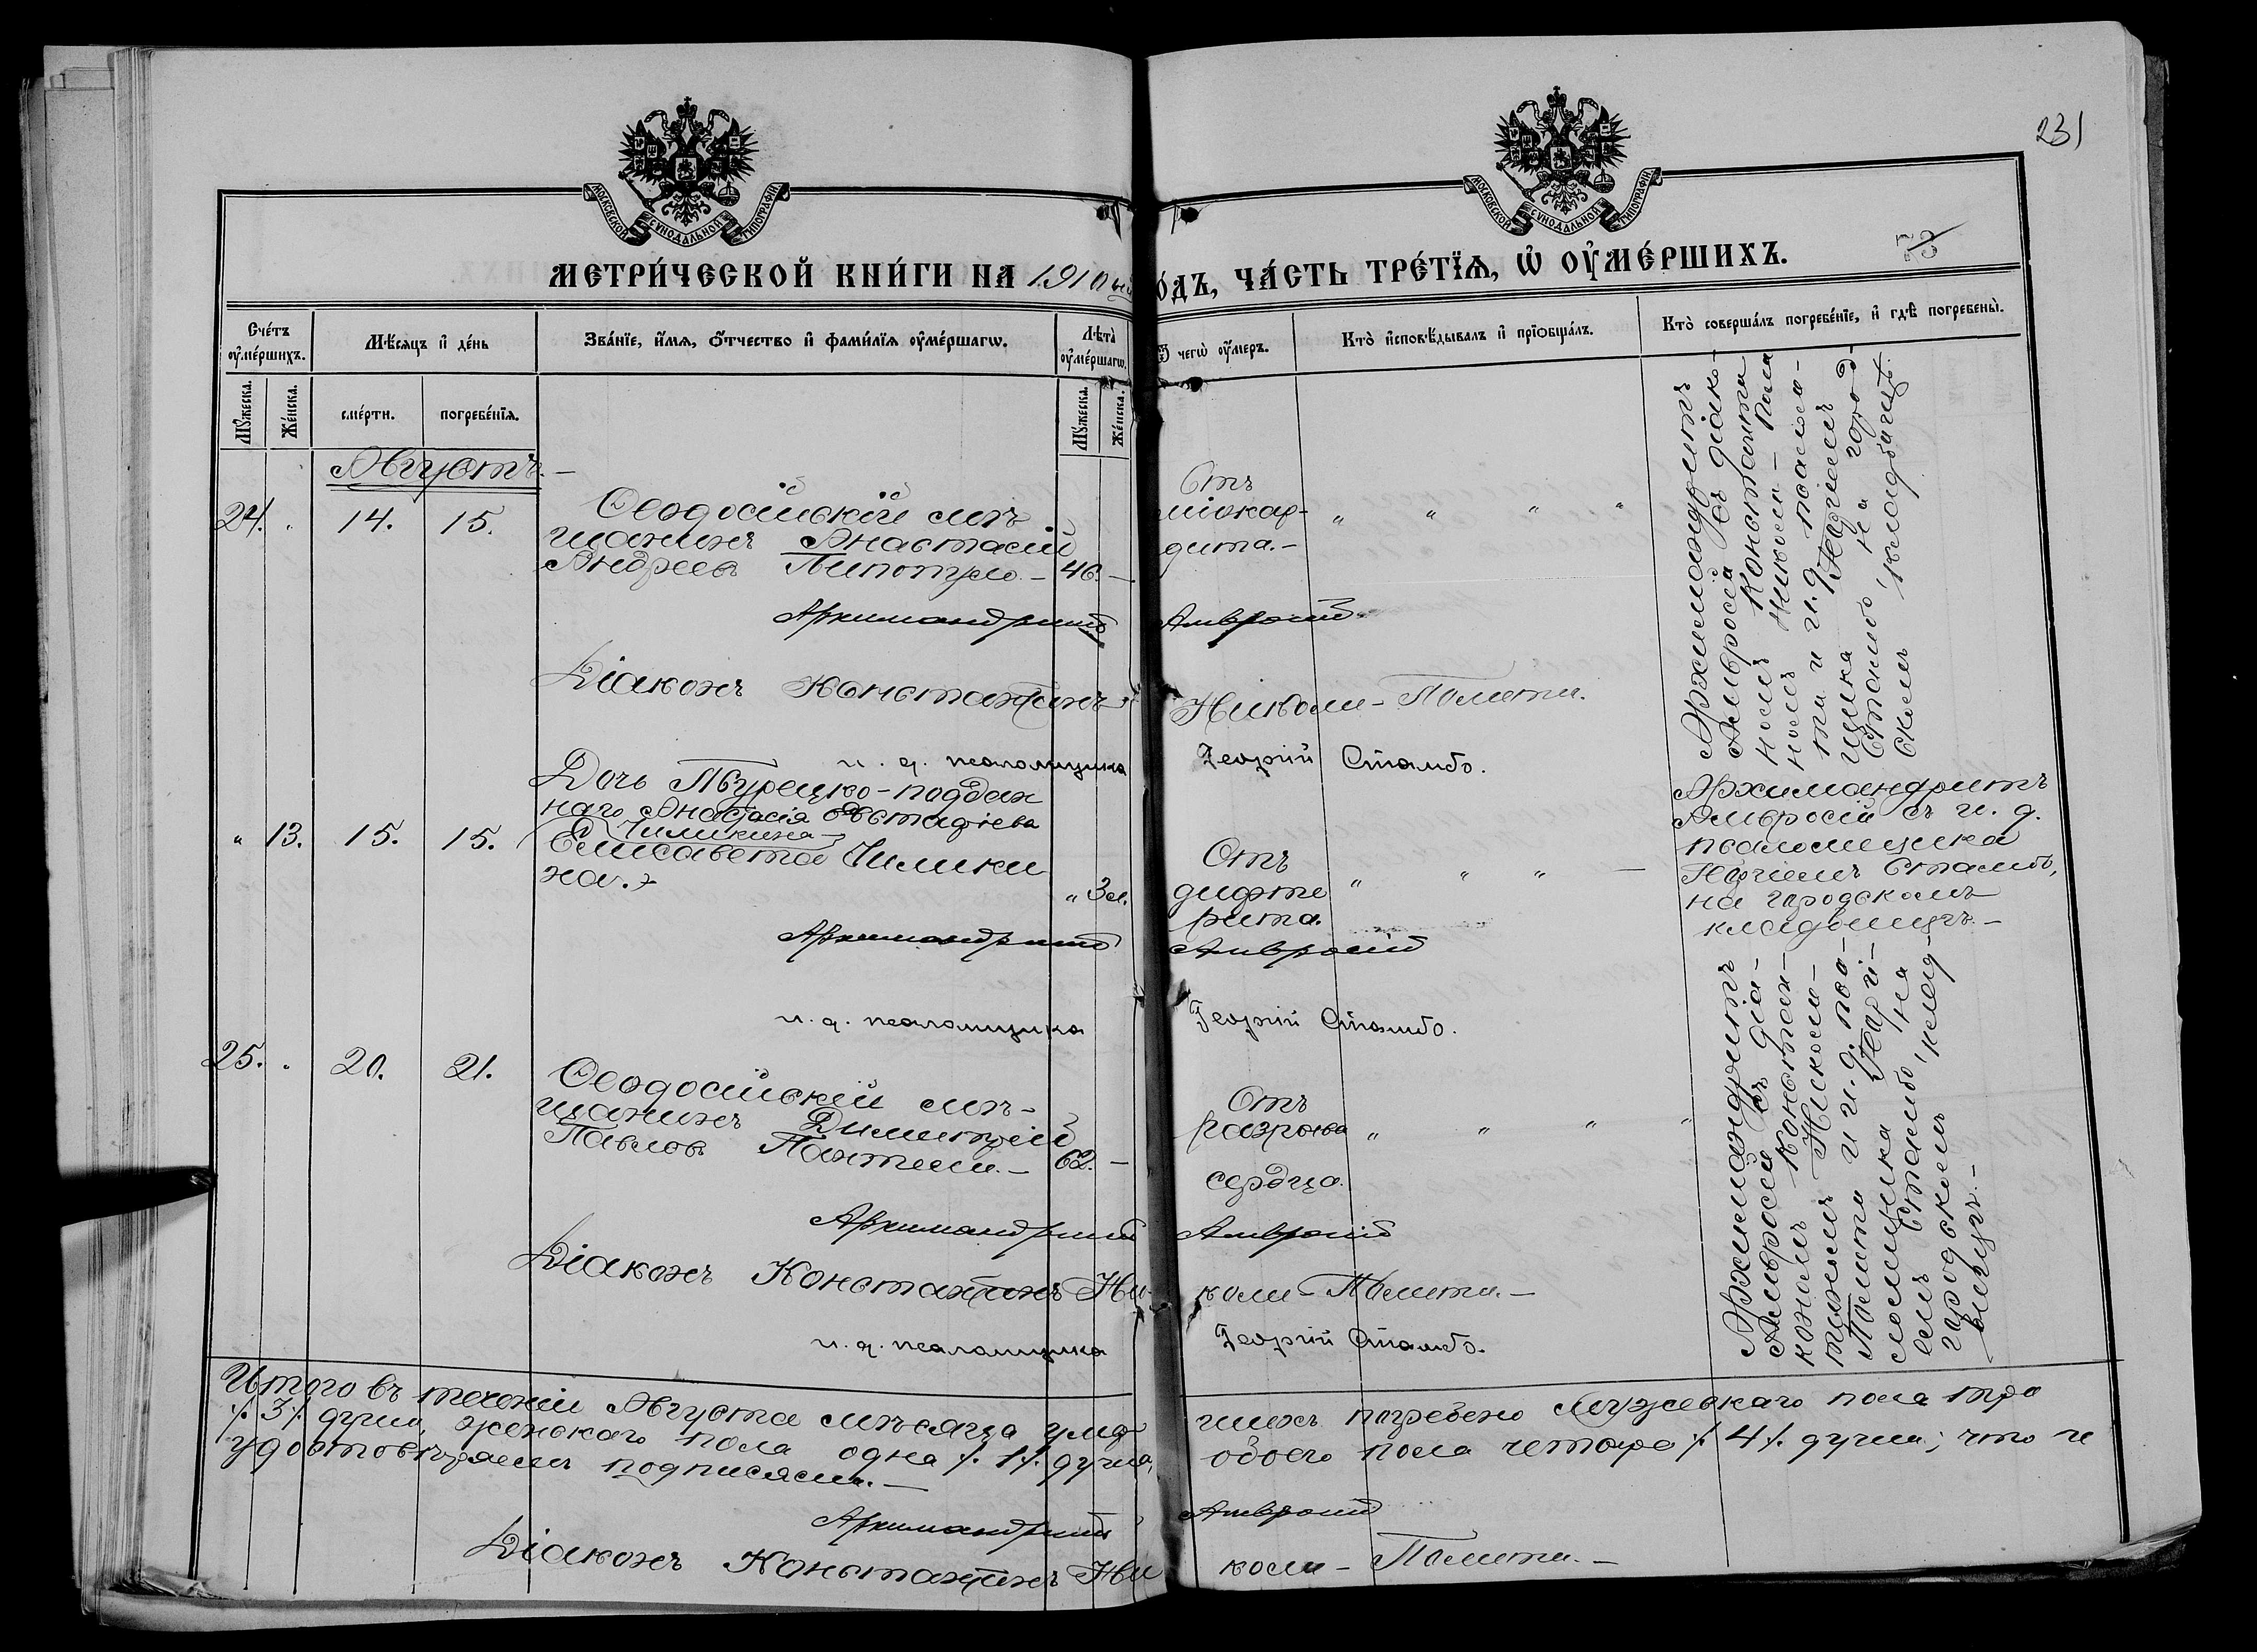 231
75
МОСКОВСКОЙ СУНОДАЛЬНОЙ ТИПОГРАФІИ
МОСКОВСКОЙ СУНОДАЛЬНОЙ ТИПОГРАФІИ
МЕТРИ́ЧЕСКОЙ КНИ́ГИ НА 1910 ый
О́ДЪ, ЧА́СТЬ ТРЕ́ТЇѦ, Ѡ҆ ОУ҆МЕ́РШИХЪ.
Сче́тъ оу҆ме́ршихъ.
Мѣ́сяцъ и҆ де́нь
Зва́нїе, и҆́мѧ, ѻ҆́тчество и҆ фами́лїѧ оу҆ме́ршагѡ.
Лѣта̀ оу҆ме́ршагѡ.
Ѿ чегѡ̀ оу҆́меръ.
Кто̀ и҆сповѣ́дывалъ и҆ прїѡбща́лъ.
Кто̀ соверша́лъ погребе́нїе, и҆ гдѣ̀ погребены̀.
Мꙋ́жеска.
Же́нска.
сме́рти.
погребе́нїѧ.
Мꙋ́жеска.
Же́нска.
Августъ.—
24. " 14. 15.
Ѳеодосійскій мѣ-
щанинъ Анастасій
Андреевъ Пипотуло — 46. —
Отъ
міокар-
дита.—
" " " "
Архимандритъ
Амвросій съ діако-
номъ Константи-
номъ Николи-Поли-
ти и и. д. псалом-
щика Георгіемъ
Стамбо, на город-
скомъ кладбищѣ.
Архимандритъ Амвросій
Діаконъ Константинъ Николи-Полити.
и. д. псаломщика Георгій Стамбо.
Дочь Турецко-поддан
наго Анастасія Евстафіева
Чиликина—
" 13. 15. 15.
Елисавета Чилики
на.
" 3 м.
Отъ
дифте
рита.
" " " —
Архимандритъ
Амвросій съ и. д.
псаломщика
Георгіемъ Стамбо,
на городскомъ
кладбищѣ.—
Архимандритъ Амвросій
и. д. псаломщика Георгій Стамбо.
25. " 20. 21.
Ѳеодосійскій мѣ-
щанинъ Димитрій
Павловъ Пантели.— 62. —
Отъ
разрыва
сердца.
" " " "
Архимандритъ
Амвросій съ діа-
кономъ Констан-
тиномъ Николи-
Полити и и. д. пса-
ломщика Георгі-
емъ Стамбо, на
городскомъ клад-
бищѣ.—
Архимандритъ Амвросій
Діаконъ Константинъ Николи-Полити.—
и. д. псаломщика Георгій Стамбо.
Итого въ теченіи Августа мѣсяца умер шихъ погребено мужескаго пола три
/. 3 /. души, женскаго пола одна /. 1 /. душа, обоего пола четыре /. 4 /. души; что и
удостовѣряемъ подписями.—
Архимандритъ Амвросій
Діаконъ Константинъ Николи-Полити.—